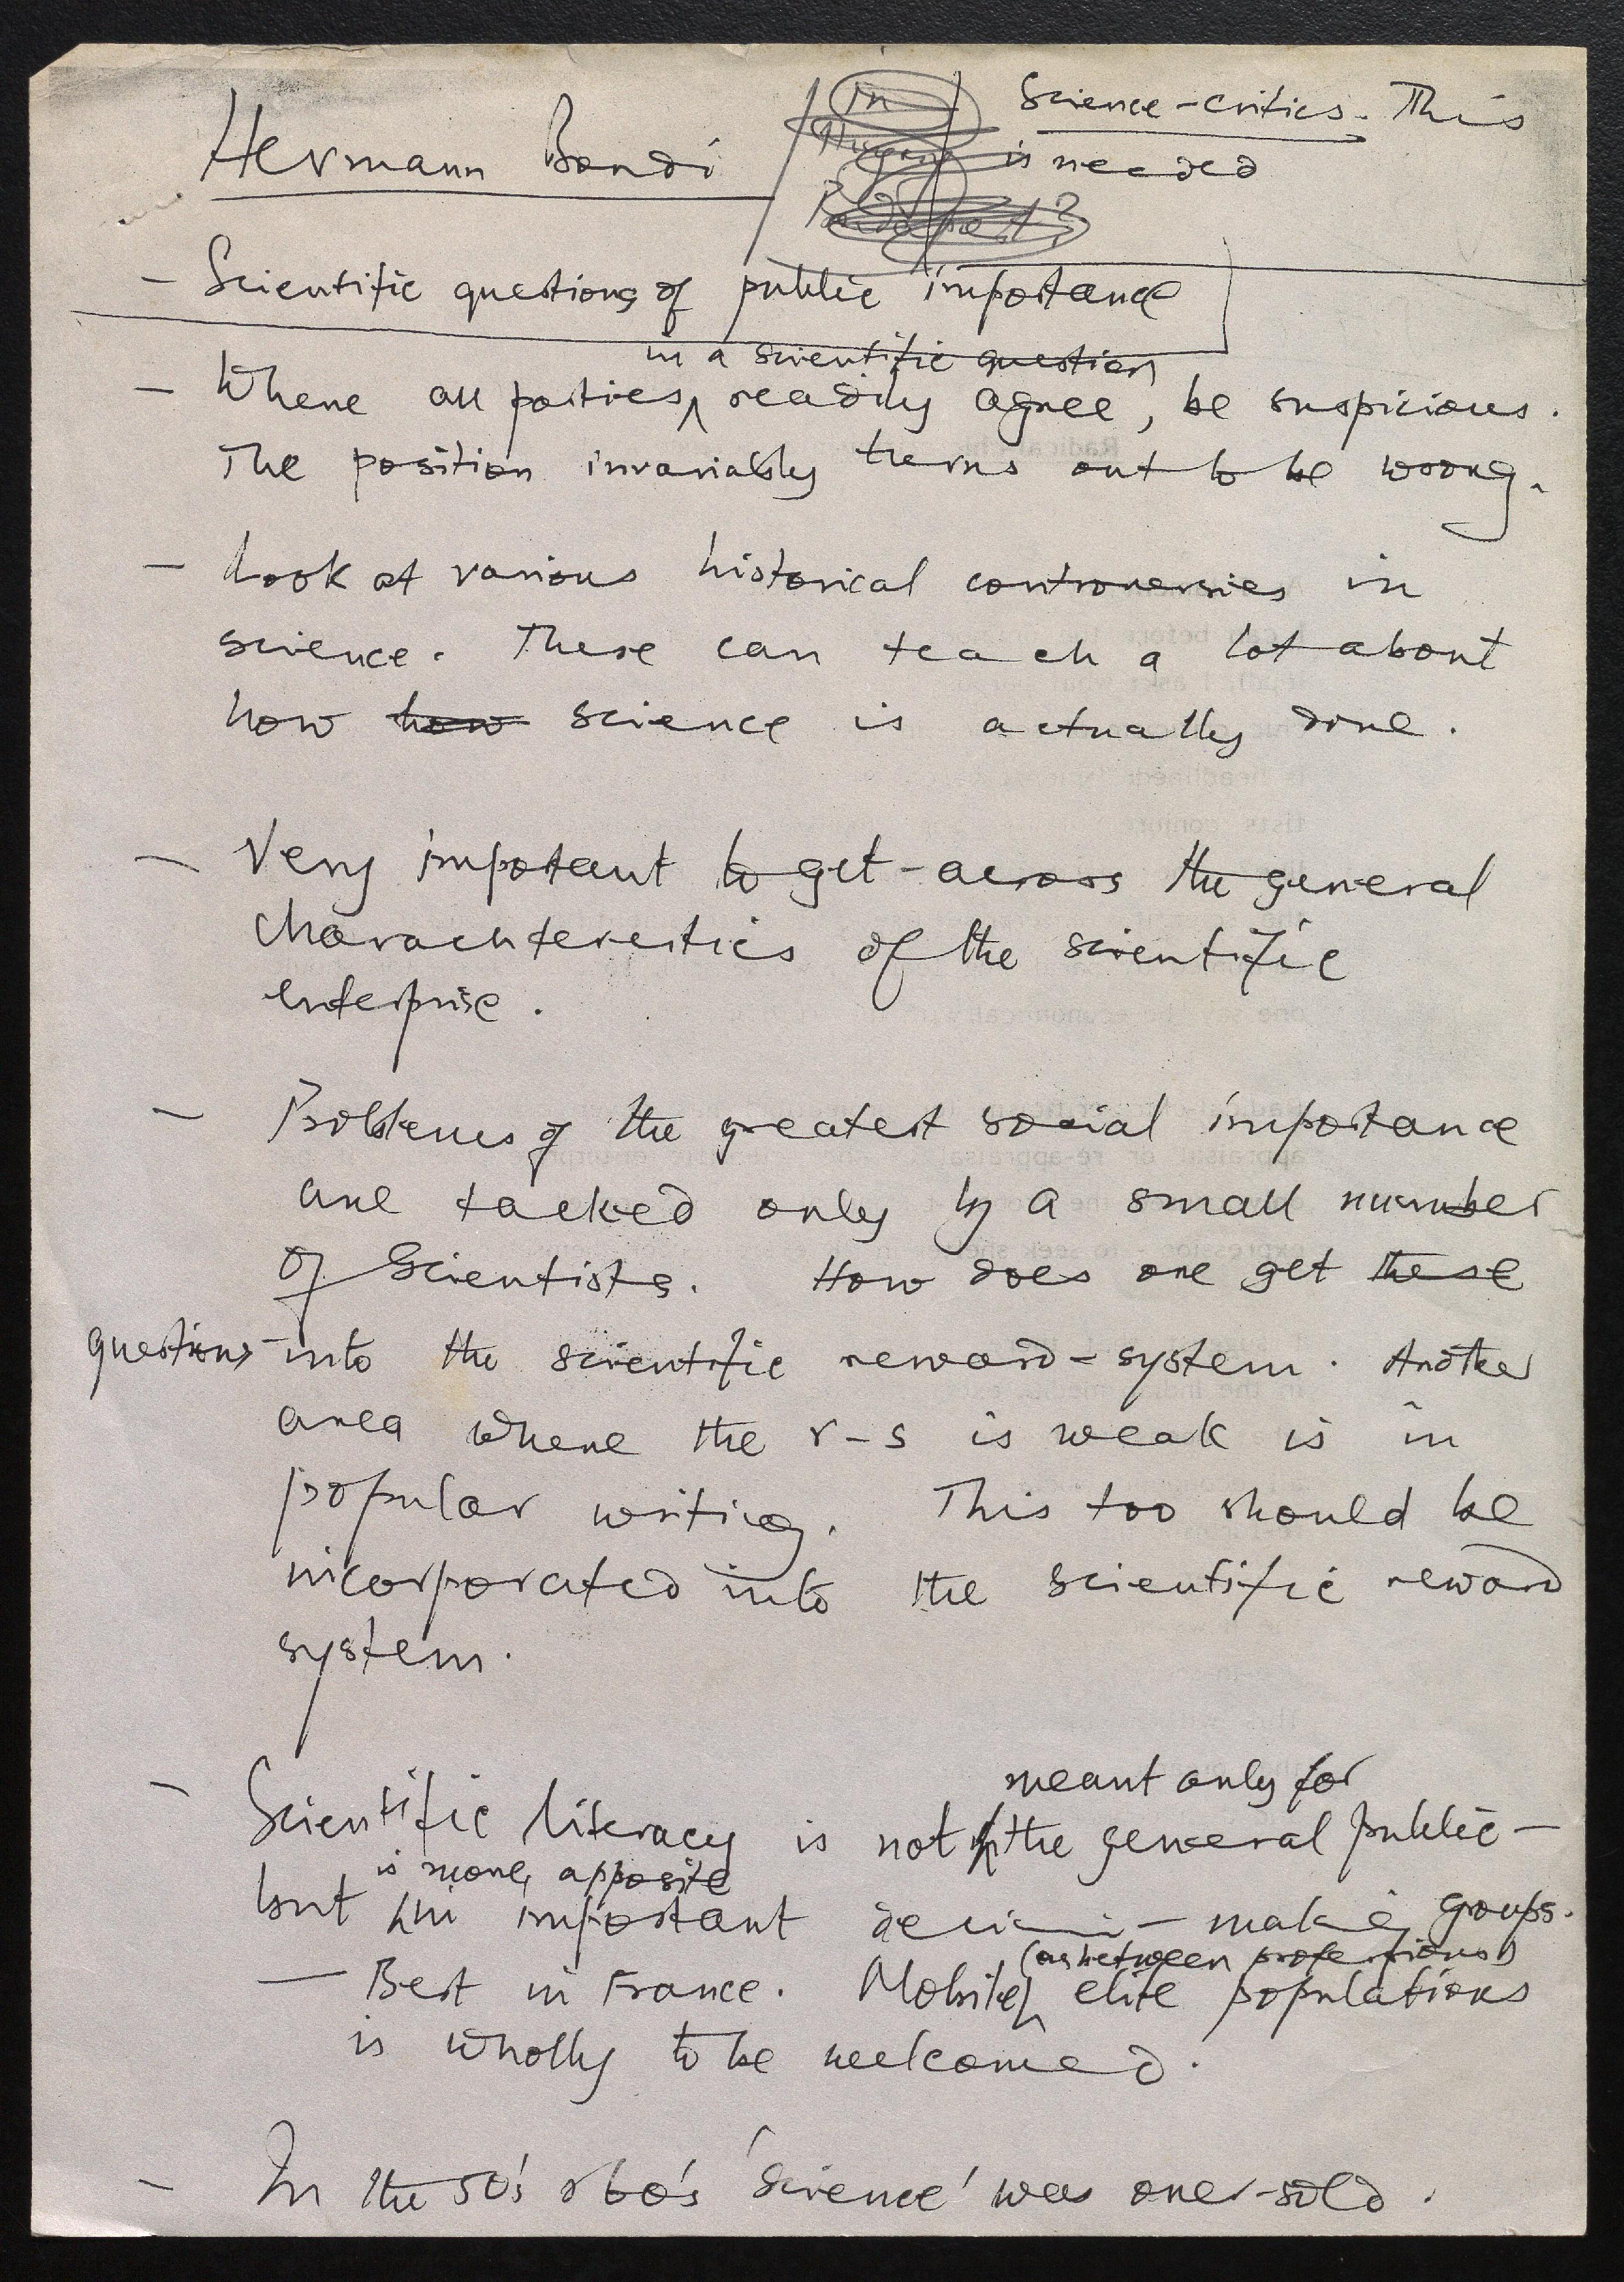 Hermann Bondi
In
Budapest?
Science-critics. This
is needed
- Scientific questions of public importance
in a scientific question
- Where all parties readily agree, be suspicious.
The position invariably turns out to be wrong.
- Look at various historical controversies in
science. These can teach a lot about
how how science is actually done.
- Very impotant to get-across the general
charachterestics of the scientific
enterprise.
- Problems of the greatest social importance
are tacked only by a small number
of Scientists. How does one get these
questions into the scientific reward-system. Another
area where the r-s is weak is in
popular writing. This too should be
incorporated into the scientific reward
system.
meant only for
- Scientific literacy is not the general public -
is more, apposite
but in important decision-making groups.
(as between professions)
- Best in France. Mobile elite populations
is wholly to be welcomed.
- In the 50's & 60's 'Science' was over-sold.